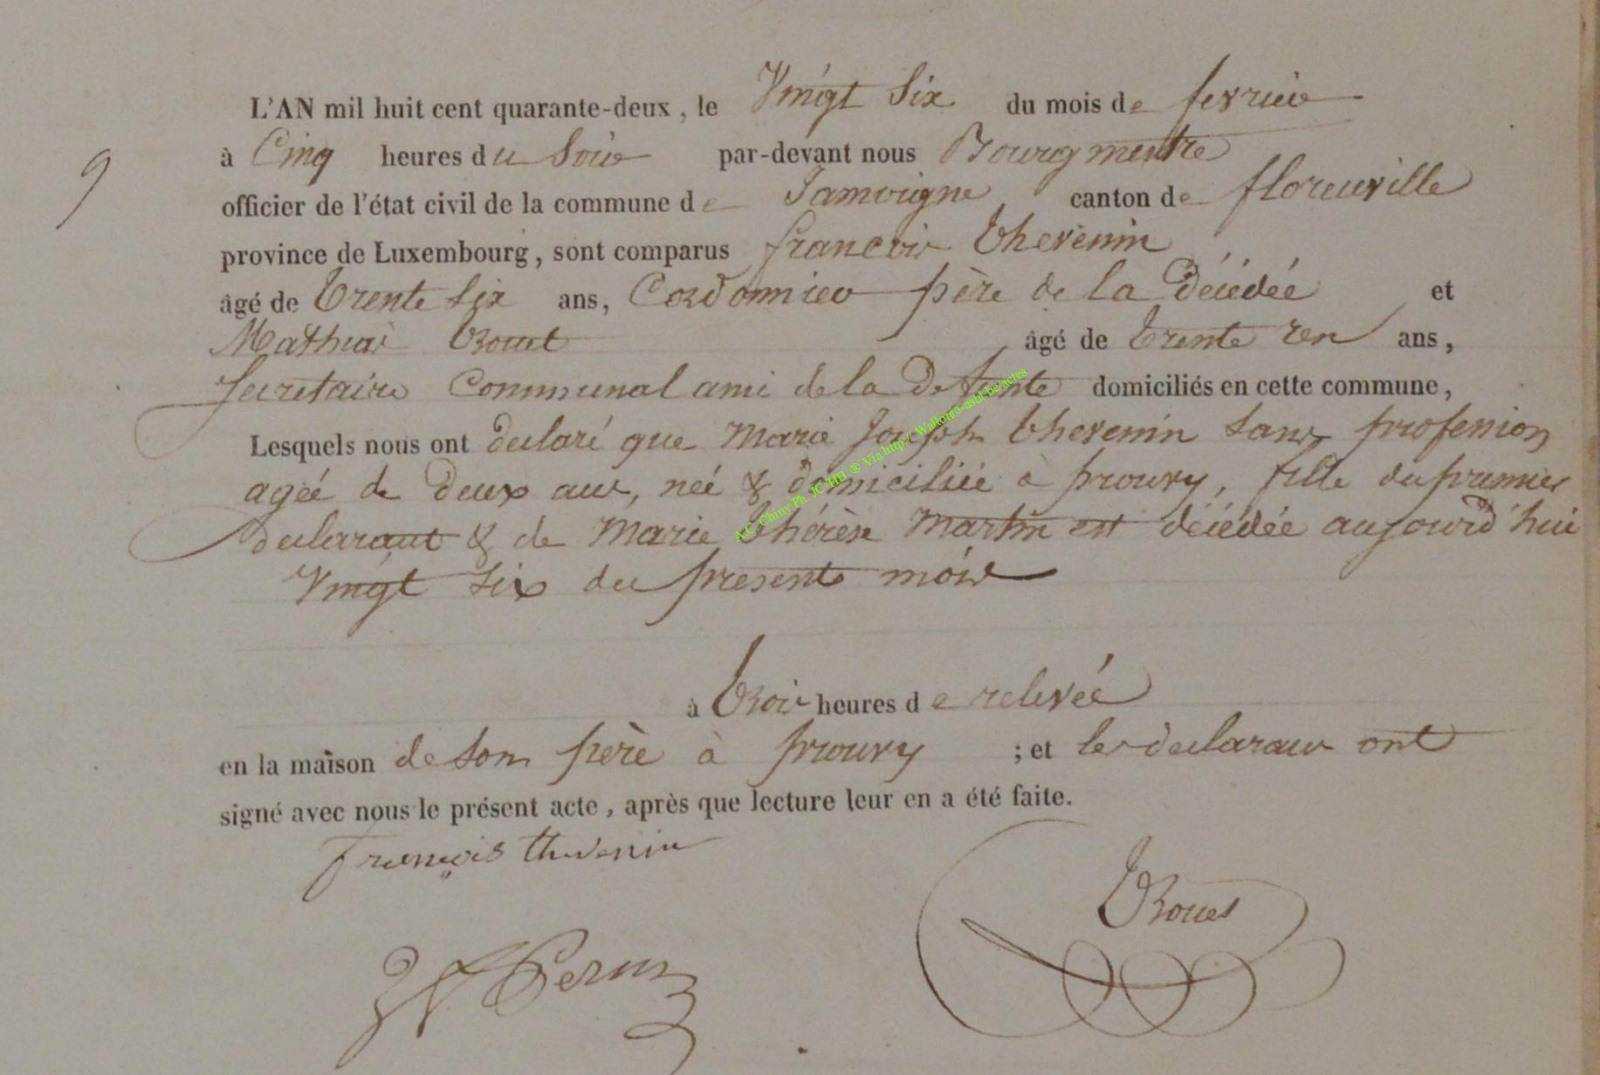 L'AN mil huit cent quarante-deux, le Vingt Six du mois de fevrier
9
à Cinq heures du Soir par-devant nous Bourgmestre
officier de l'état civil de la commune de Jamoigne canton de florenville
province de Luxembourg, sont comparus françois thevenin
âgé de trente six ans, Cordonnier père de la décédée et
Mathieu âgé de trente un ans,
Secretaire Communal ami de la defunte domiciliés en cette commune,
Lesquels nous ont declaré que Marie Joseph thevenin Sans profession
agéé de deux ans, néé & domiciliéé à prouvy, fille du premier
declarant & de Marie thérèse Martin est décédée aujourd'hui
Vingt Six du present mois
à trois heures de relevéé
en la maison de son père à prouvy ; et les declarans ont
signé avec nous le présent acte, après que lecture leur en a été faite.
françois thevenin